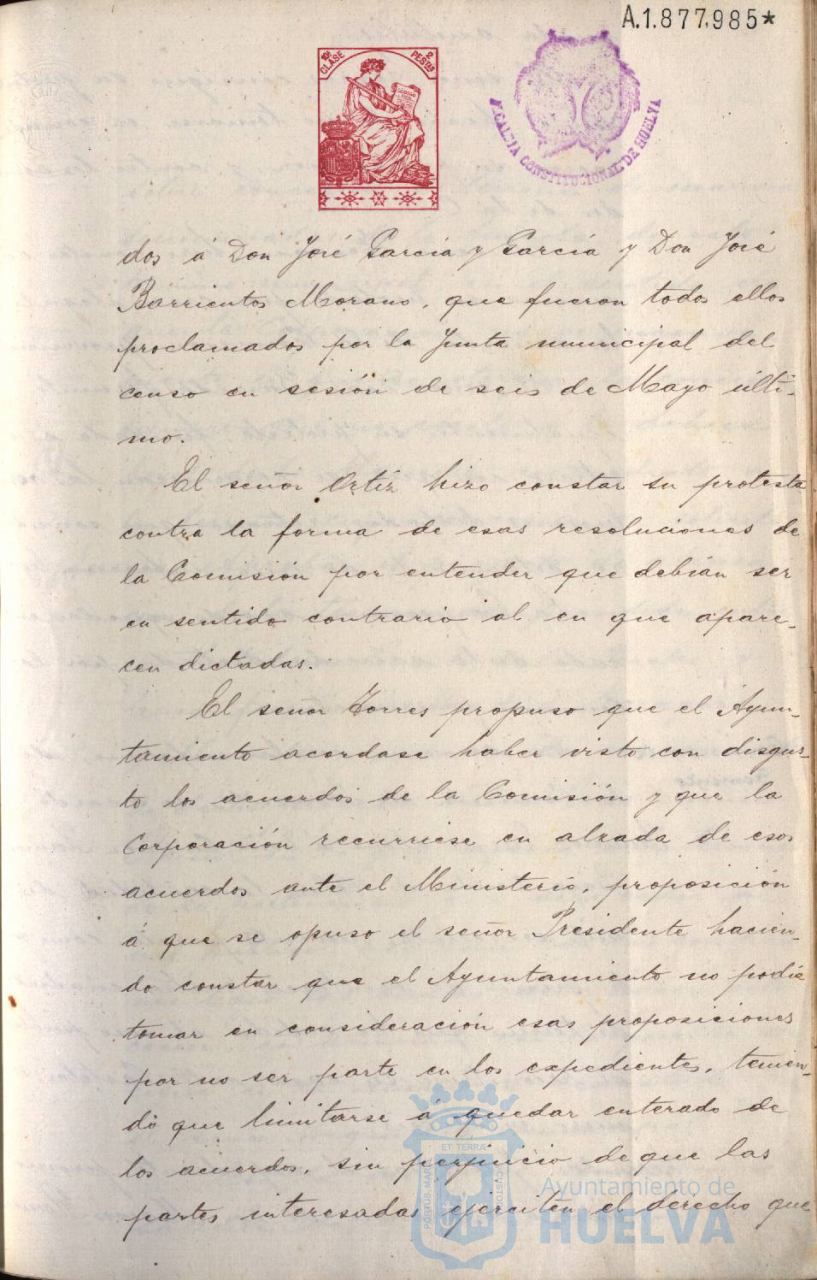 A.1.877.985*
10ª CLASE 2 PESETAS
ALCALDIA CONSTITUCIONAL DE HUELVA
dos á Don José García y García y Don José
Barrientos Morano, que fueron todos ellos
proclamados por la Junta municipal del
censo en sesión de seis de Mayo últi-
mo.
El señor Ortiz hizo constar su protesta
contra la forma de esas resoluciones de
la Comisión por entender que debian ser
en sentido contrario al en que apare-
cen dictadas.
El señor Torres propuso que el Ayun-
tamiento acordase haber visto con disgus-
to los acuerdos de la Comisión y que la
Corporación recurriese en alzada de esos
acuerdos ante el Ministerio, proposición
á que se opuso el señor Presidente hacien-
do constar que el Ayuntamiento no podia
tomar en consideración esas proposiciones
por no ser parte en los expedientes, tenien-
do que limitarse á quedar enterado de
los acuerdos, sin perjuicio de que las
partes interesadas ejerciten el derecho que
ET TERRA
Ayuntamiento de
HUELVA